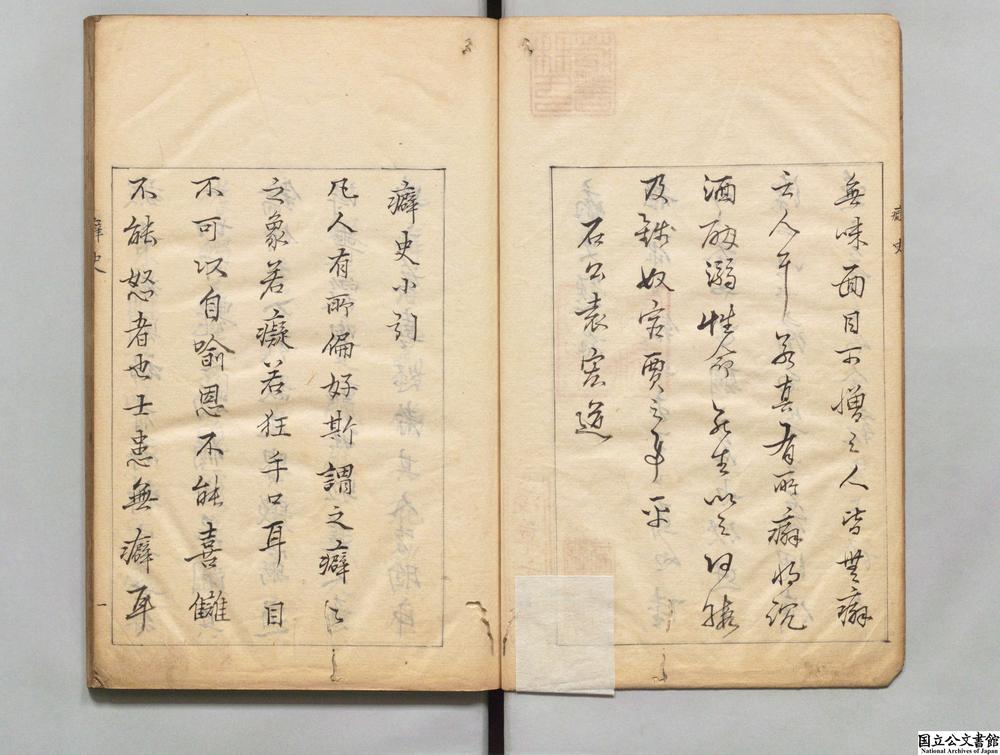 無味面目可憎之人皆無癖
之人耳若真有所癖將沉
酒酣溺性命死生以之何暇
及錢奴宦賈之事乎
石公袁宏道
癖史
癖史小引
凡人有所偏好斯謂之癖癖
之象若癡若狂手口耳目
不可以自喻恩不能喜讎
不能怒者也士患無癖耳
癖史
一
国立公文書館
National Archives of Japan